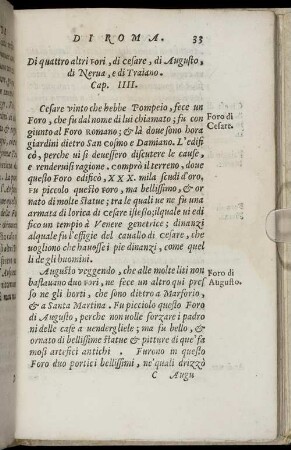 DI ROMA. 33
Di quattro altri Fori, di Cesare, di Augusto,
di Nerua, e di Traiano.
Cap. IIII.
Cesare vinto che hebbe Pompeio, fece un
Foro, che fu dal nome di lui chiamato; fu con
giunto al Foro Romano; & là doue sono hora
giardini dietro San Cosmo e Damiano. L'edifi
cò, perche ui si douessero discutere le cause,
e renderuisi ragione. comprò il terreno, doue
questo Foro edificò, XXX. mila scudi d'oro,
Fu piccolo questo Foro, ma bellissimo, & or
nato di molte statue; tra le quali ue ne fu una
armata di lorica di Cesare istesso; ilquale ui edi
fico un tempio à Venere genetrice; dinanzi
alquale fu l'effigie del cauallo di Cesare, che
uogliono che hauesse i pie dinanzi, come quel
li de gli huomini.
Foro di
Cesare.
Augusto veggendo, che alle molte liti non
bastauano duo Fori, ne fece un altro qui pres
so ne gli horti, che sono dietro a Marforio,
& a Santa Martina. Fu picciolo questo Foro
di Augusto, perche non uolle sforzare i padro
ni delle case a uendergliele; ma fu bello, &
ornato di bellissime statue & pitture di que' fa
mosi artefici antichi. Furono in questo
Foro duo portici bellissimi, ne'quali drizzò
Foro di
Augusto.
C Augu